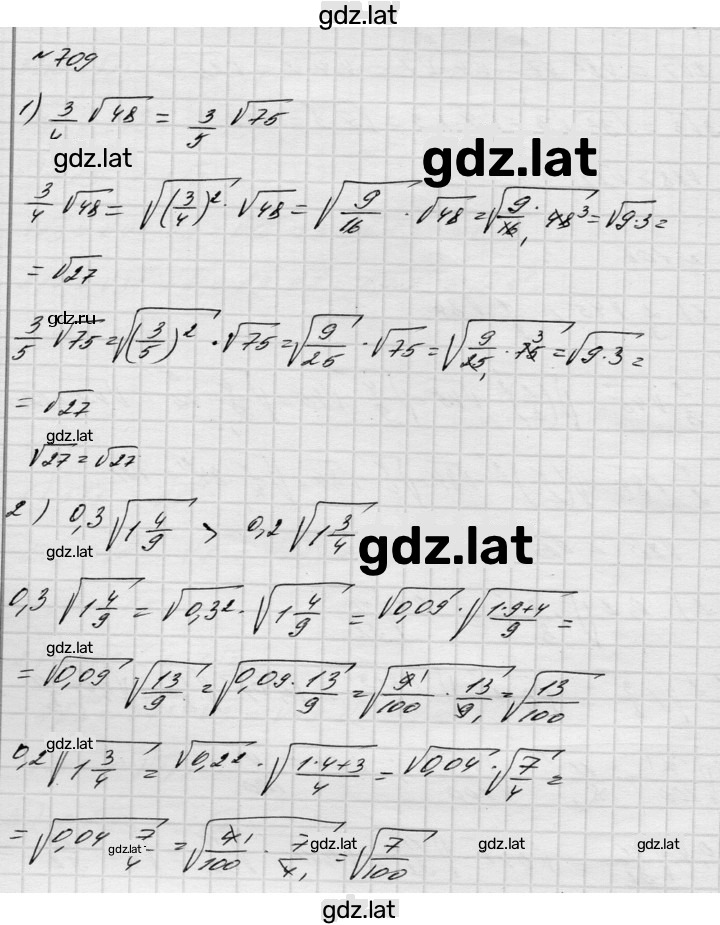 gdz.lat
№ 709
1) 3/4 √48 = 3/5 √75
gdz.lat
gdz.lat
3/4 √48 = √(3/4)² · √48 = √9/16 · √48 = √9/16₁ · 48³ = √9·3 =
= √27
gdz.ru
3/5 √75 = √(3/5)² · √75 = √9/25 · √75 = √9/25₁ · 75³ = √9·3 =
= √27
gdz.lat
√27 = √27
2) 0,3 √1 4/9 > 0,2 √1 3/4
gdz.lat
gdz.lat
0,3 √1 4/9 = √0,3² · √1 4/9 = √0,09 · √1·9+4/9 =
gdz.lat
= √0,09 √13/9 = √0,09 · 13/9 = √9¹/100 · 13/9₁ = √13/100
gdz.lat
0,2 √1 3/4 = √0,2² · √1·4+3/4 = √0,04 · √7/4 =
= √0,04 7/4 = √4¹/100 · 7/4₁ = √7/100
gdz.lat
gdz.lat
gdz.lat
gdz.lat
gdz.lat